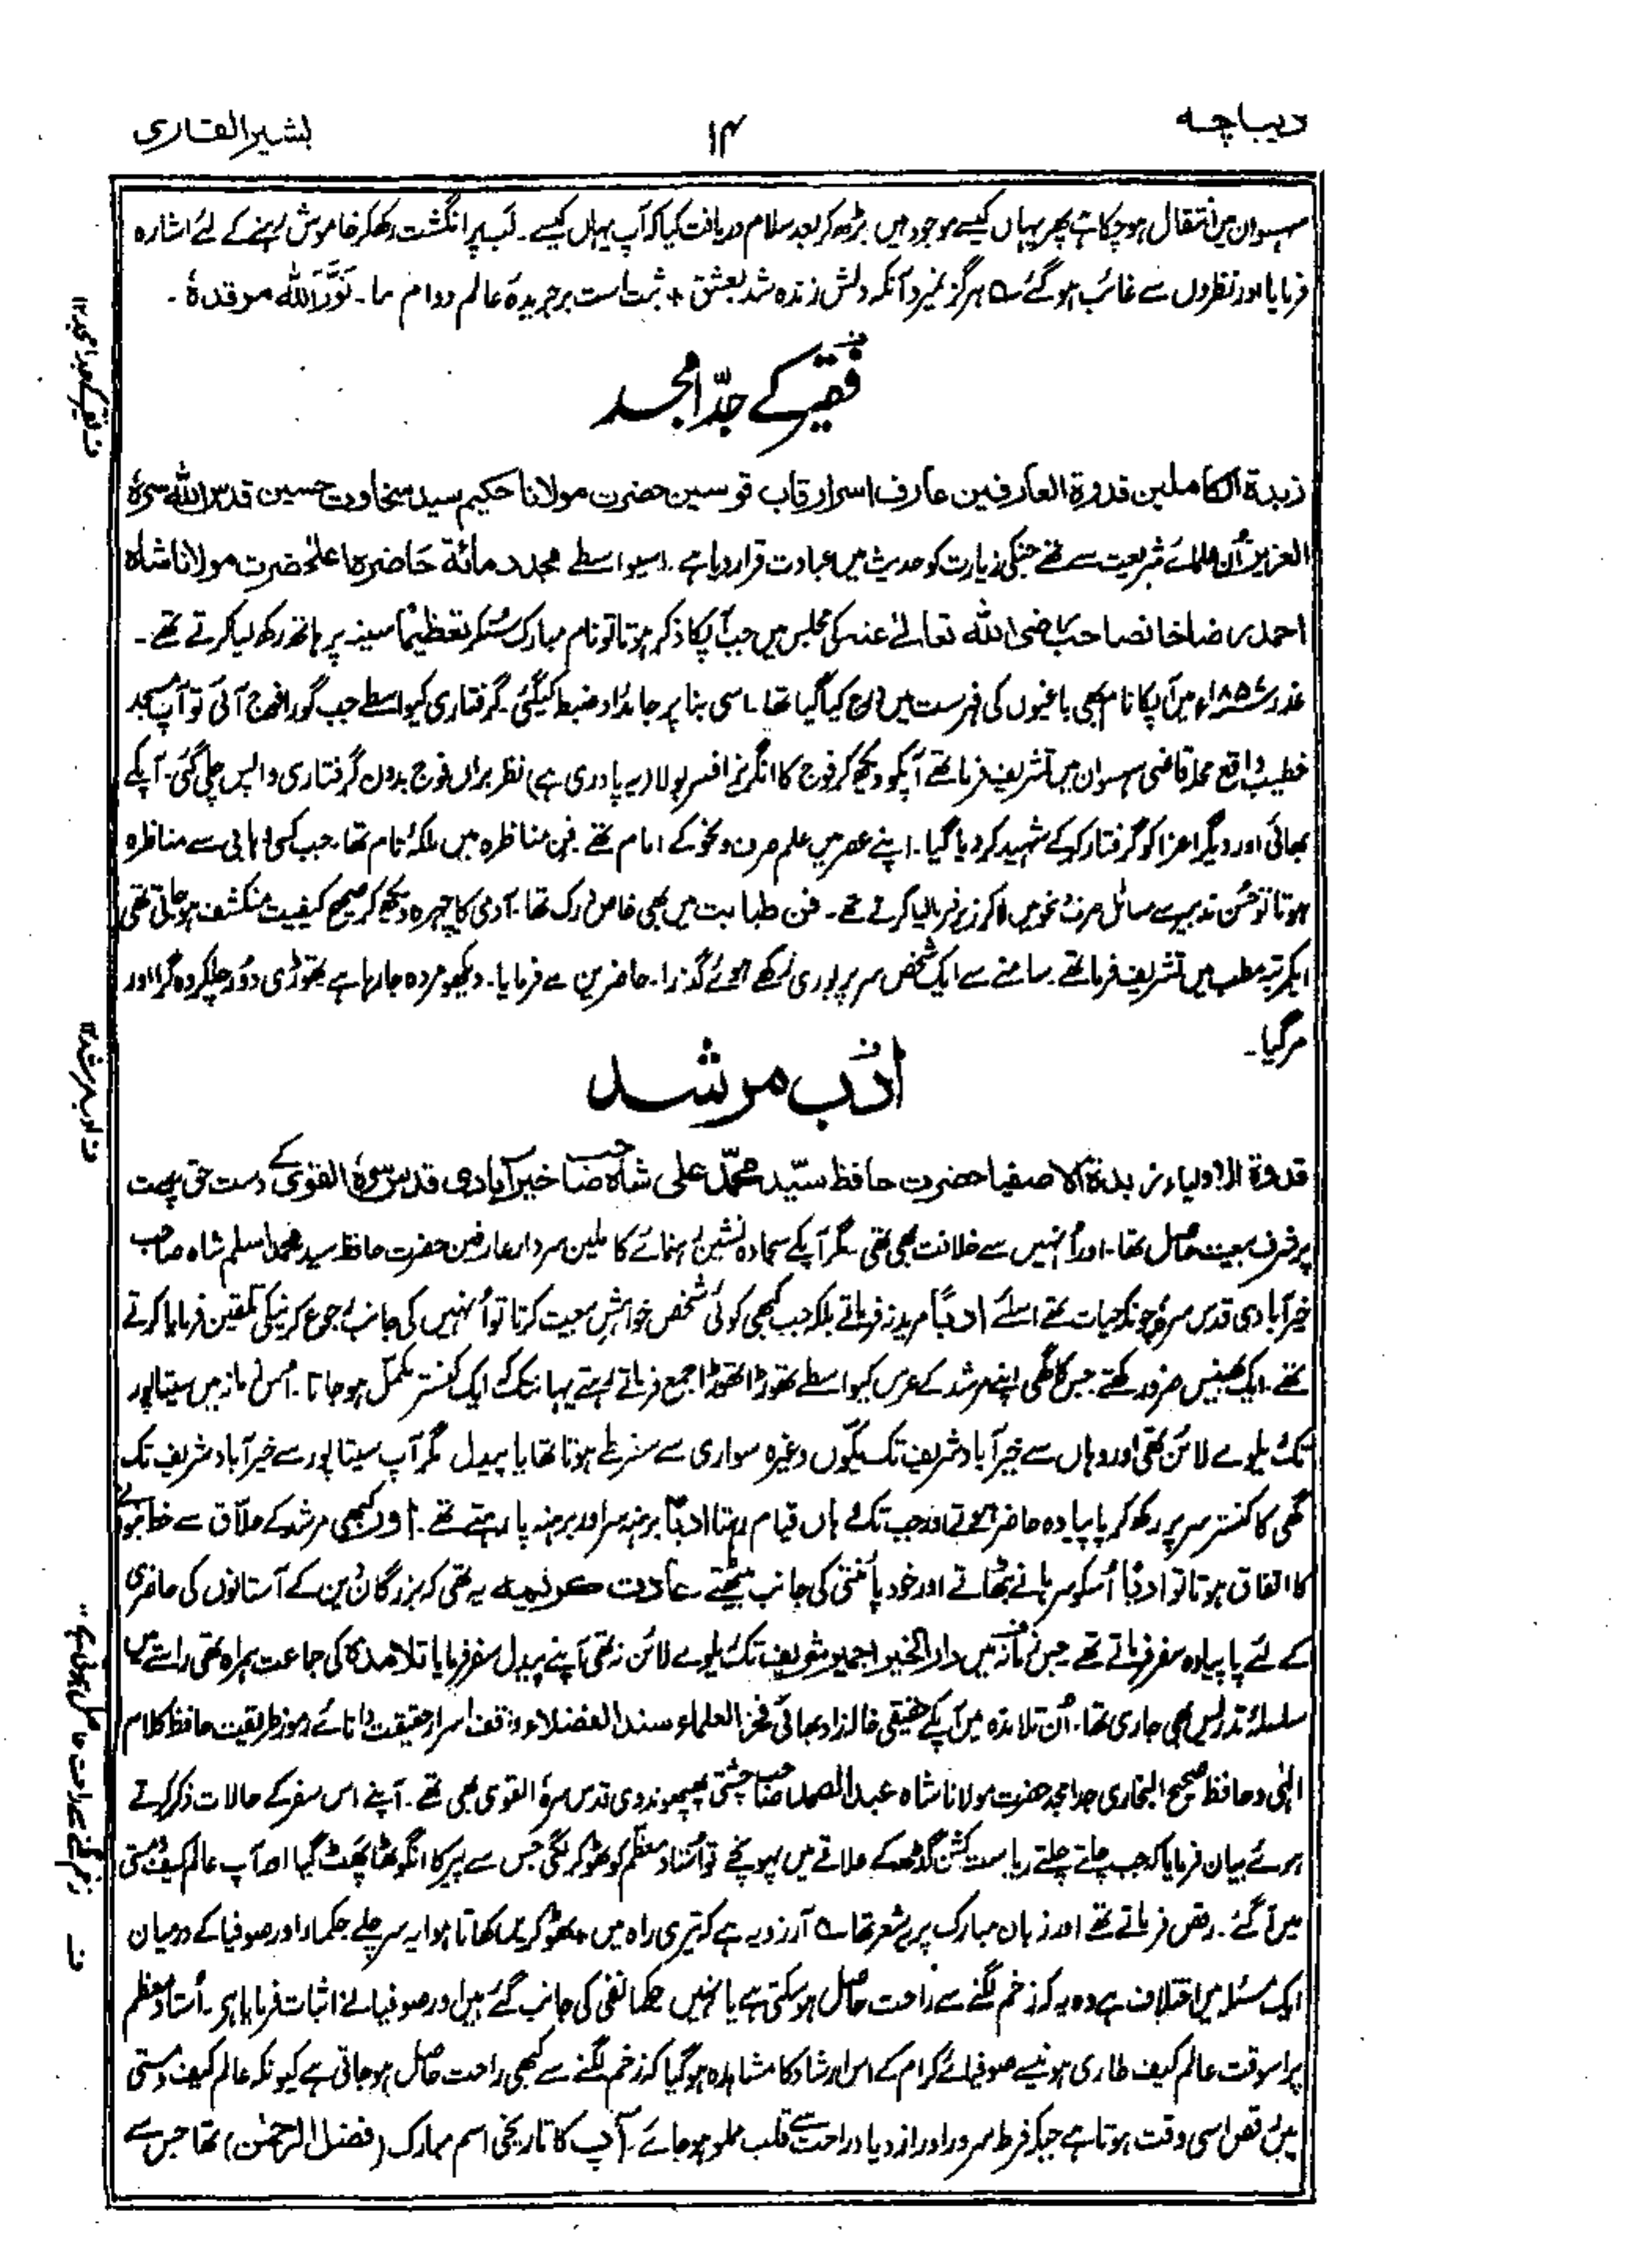 دیباچہ
۱۴
بشیر القاری
سہسوان میں انتقال ہو چکا ہے پھر یہاں کیسے موجود ہیں بڑھ کر بعد سلام دریافت کیا کہ آپ یہاں کیسے۔ لب پر انگشت رکھکر خاموش رہنے کے لئے اشارہ
فرمایا اور نظروں سے غائب ہو گئے ؎ ہرگز نمیرد آنکہ دلش زندہ شد بعشق + ثبت است بر جریدۂ عالم دوام ما۔ نَوَّرَ اللہ مرقدہٗ۔
فقیر کے جدّ امجد
زبدۃ الکاملین قدوۃ العارفین عارف اسرار قاب قوسین حضرت مولانا حکیم سید سخاوت حسین قدس اللہ سرہٗ
العزیز اُن علمائے شریعت سے تھے جنکی زیارت کو حدیث میں عبادت قرار دیا ہے۔ اسیواسطے مجدد مائۃ حاضرہ اعلحضرت مولانا شاہ
احمد رضا خانصاحب رضی اللہ تعالےٰ عنہ کی مجلس میں جب آپکا ذکر ہوتا تو نام مبارک سُنکر تعظیماً سینہ پر ہاتھ رکھ لیا کرتے تھے۔
غدر ۱۸۵۷ء میں آپکا نام بھی باغیوں کی فہرست میں درج کیا گیا تھا۔ اسی بنا پر جائداد ضبط کیگئی۔ گرفتاری کیواسطے جب گورا فوج آئی تو آپ مسجد
خطیب واقع محلہ قاضی سہسوان میں تشریف فرما تھے آپکو دیکھ کر فوج کا انگریز افسر بولا (یہ پادری ہے) نظر براں فوج بدون گرفتاری واپس چلی گئی۔ آپکے
بھائی اور دیگر اعزا کو گرفتار کر کے شہید کر دیا گیا۔ اپنے عصر میں علم صرف ونحو کے امام تھے۔ فن مناظرہ میں ملکۂ تام تھا۔ جب کسی وہابی سے مناظرہ
ہوتا تو حُسن تدبیر سے مسائل صرف و نحو میں لاکر زیر فرما لیا کرتے تھے۔ فن طبابت میں بھی خاص درک تھا۔ آدمی کا چہرہ دیکھ کر صحیح کیفیت منکشف ہو جاتی تھی
ایکمرتبہ مطب میں تشریف فرما تھے۔ سامنے سے ایک شخص سر پر بوری رکھے ہوئے گذرا۔ حاضرین سے فرمایا۔ دیکھو مردہ جا رہا ہے تھوڑی دُور چلکر وہ گرا اور
مر گیا۔
ادب مرشد
قدوۃ الاولیاء زبدۃ الاصفیا حضرت حافظ سیّد محمّد علی شاہ صاحب خیرآبادی قدس سرہٗ القوی کے دست حق پرست
پر شرف بیعت حاصل تھا۔ اور اُنہیں سے خلافت بھی تھی۔ مگر آپکے سجادہ نشین رہنمائے کاملین سردار عارفین حضرت حافظ سید محمد اسلم شاہ صاحب
خیرآبادی قدس سرہٗ چونکہ حیات تھے اسلئے ادباً مرید نہ فرماتے بلکہ جب کبھی کوئی شخص خواہش بیعت کرتا تو اُنہیں کی جانب رجوع کرنیکی تلقین فرمایا کرتے
تھے۔ ایک بھینس ضرور رکھتے جس کا گھی اپنے مرشد کے عرس کیواسطے تھوڑا تھوڑا جمع فرماتے رہتے یہانتک کہ ایک کنستر مکمل ہو جاتا۔ اُس زمانہ میں سیتاپور
تک ریلوے لائن تھی اور وہاں سے خیرآباد شریف تک یکّوں وغیرہ سواری سے سفر طے ہوتا تھا یا پیدل مگر آپ سیتاپور سے خیرآباد شریف تک
گھی کا کنستر سر پر رکھ کر پا پیادہ حاضر ہوتے اور جب تک وہاں قیام رہتا ادباً برہنہ سر اور برہنہ پا رہتے تھے۔ اور کبھی مرشد کے حلّاق سے خط بنوانے
کا اتفاق ہوتا تو ادباً اُسکو سرہانے بٹھاتے اور خود پائنتی کی جانب بیٹھتے۔ عادت کریمہ یہ تھی کہ بزرگان دین کے آستانوں کی حاضری
کے لئے پا پیادہ سفر فرماتے تھے جس زمانہ میں دار الخیر اجمیر شریف تک ریلوے لائن نہ تھی آپنے پیدل سفر فرمایا تلامذہ کی جماعت ہمراہ تھی راستے میں
سلسلۂ تدریس بھی جاری تھا۔ اُن تلامذہ میں آپکے حقیقی خالزاد بھائی فخر العلماء سند الفضلاء واقف اسرار حقیقت دانائے رموز طریقت حافظ کلام
الٰہی و حافظ صحیح البخاری جد امجد حضرت مولانا شاہ عبد الصمد صاحب چشتی پھپھوندوی قدس سرہٗ القوی بھی تھے۔ آپنے اس سفر کے حالات ذکر کرتے
ہوئے بیان فرمایا کہ جب چلتے چلتے ریاست کشن گڈھ کے علاقے میں پہونچے تو اُستاد معظم کو ٹھوکر لگی جس سے پیر کا انگوٹھا پھٹ گیا اور آپ عالم کیف و مستی
میں آ گئے۔ رقص فرماتے تھے اور زبان مبارک پر یہ شعر تھا ؎ آرزو یہ ہے کہ تیری راہ میں + ٹھوکریں کھاتا ہوا یہ سر چلے حکماء اور صوفیا کے درمیان
ایک مسئلہ میں اختلاف ہے وہ یہ کہ زخم لگنے سے راحت حاصل ہو سکتی ہے یا نہیں حکما نفی کی جانب گئے ہیں اور صوفیا نے اثبات فرمایا ہے۔ اُستاد معظم
پر اسوقت عالم کیف طاری ہونیسے صوفیائے کرام کے اس ارشاد کا مشاہدہ ہو گیا کہ زخم لگنے سے کبھی راحت حاصل ہو جاتی ہے کیونکہ عالم کیف و مستی
میں رقص اسی وقت ہوتا ہے جبکہ فرط سرور اور ازدیاد راحت سے قلب مملو ہو جائے۔ آپ کا تاریخی اسم مبارک (فضل الرحمٰن) تھا جس سے
ف فقیر کے جد امجد ۱۲
ف ادب مرشد ۱۲